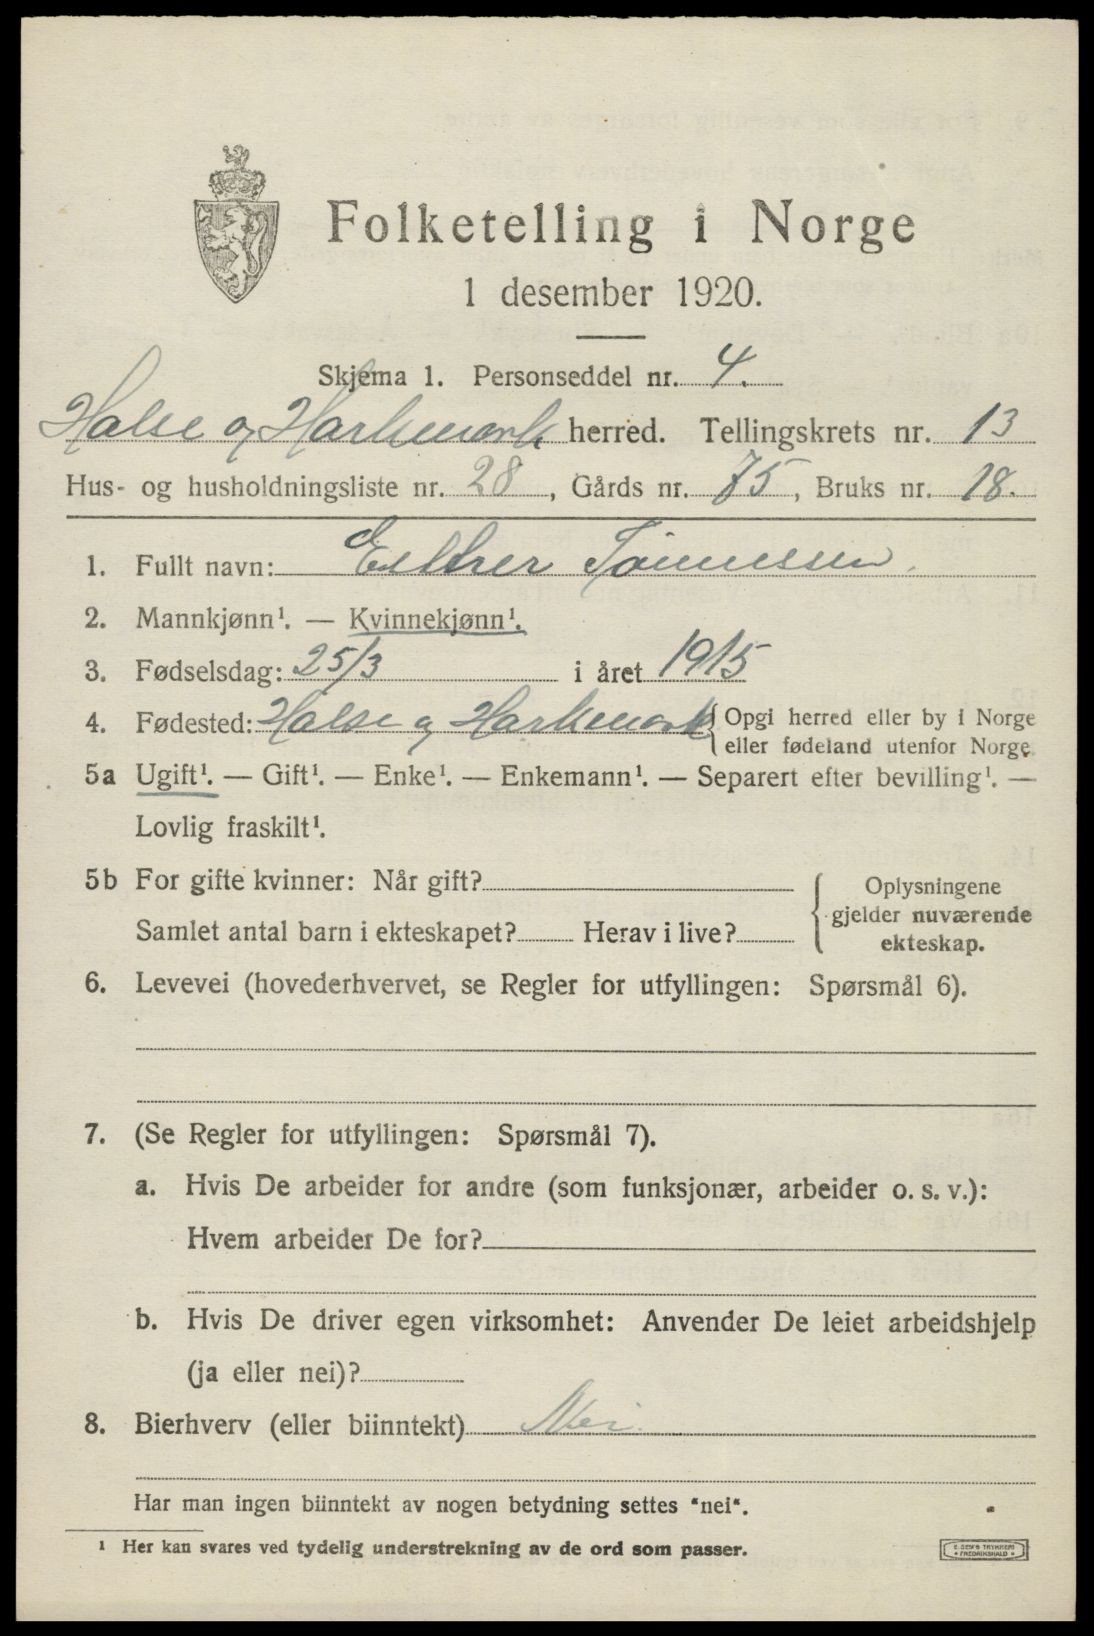 Folketelling i Norge
1 desember 1920.
Skjema 1. Personseddel nr. 4.
Halse og Harkmark herred. Tellingskrets nr. 13
Hus- og husholdningsliste nr. 28, Gårds nr. 75, Bruks nr. 18.
1. Fullt navn: Esther Tønnessen.
2. Mannkjønn¹. — Kvinnekjønn¹.
3. Fødselsdag: 25/3 i året 1915
4. Fødested: Halse og Harkmark { Opgi herred eller by i Norge
eller fødeland utenfor Norge.
5a Ugift¹. — Gift¹. — Enke¹. — Enkemann¹. — Separert efter bevilling¹. —
Lovlig fraskilt¹.
5b For gifte kvinner: Når gift?
Samlet antal barn i ekteskapet? Herav i live?
{ Oplysningene
gjelder nuværende
ekteskap.
6. Levevei (hovederhvervet, se Regler for utfyllingen: Spørsmål 6).
7. (Se Regler for utfyllingen: Spørsmål 7).
a. Hvis De arbeider for andre (som funksjonær, arbeider o. s. v.):
Hvem arbeider De for?
b. Hvis De driver egen virksomhet: Anvender De leiet arbeidshjelp
(ja eller nei)?
8. Bierhverv (eller biinntekt) Nei.
Har man ingen biinntekt av nogen betydning settes "nei".
¹ Her kan svares ved tydelig understrekning av de ord som passer.
E. SEM'S TRYKKERI
FREDRIKSHALD